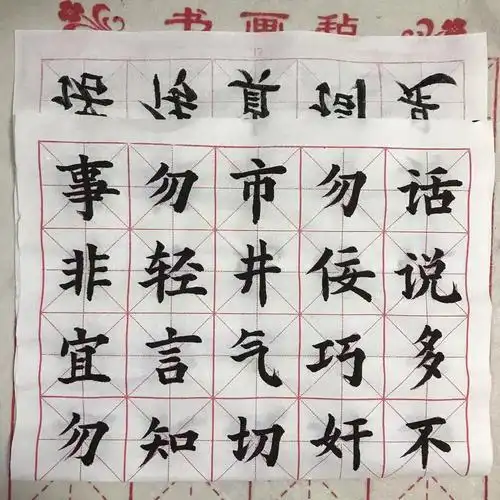 书画毡
话说多不
勿佞巧奸
市井气切
勿轻言知
事非宜勿